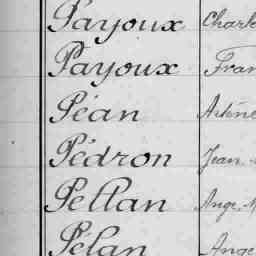 Payoux Charl
Payoux Fran
Péan
Pédron Jean
Pellan Ange M
Pélan Ange